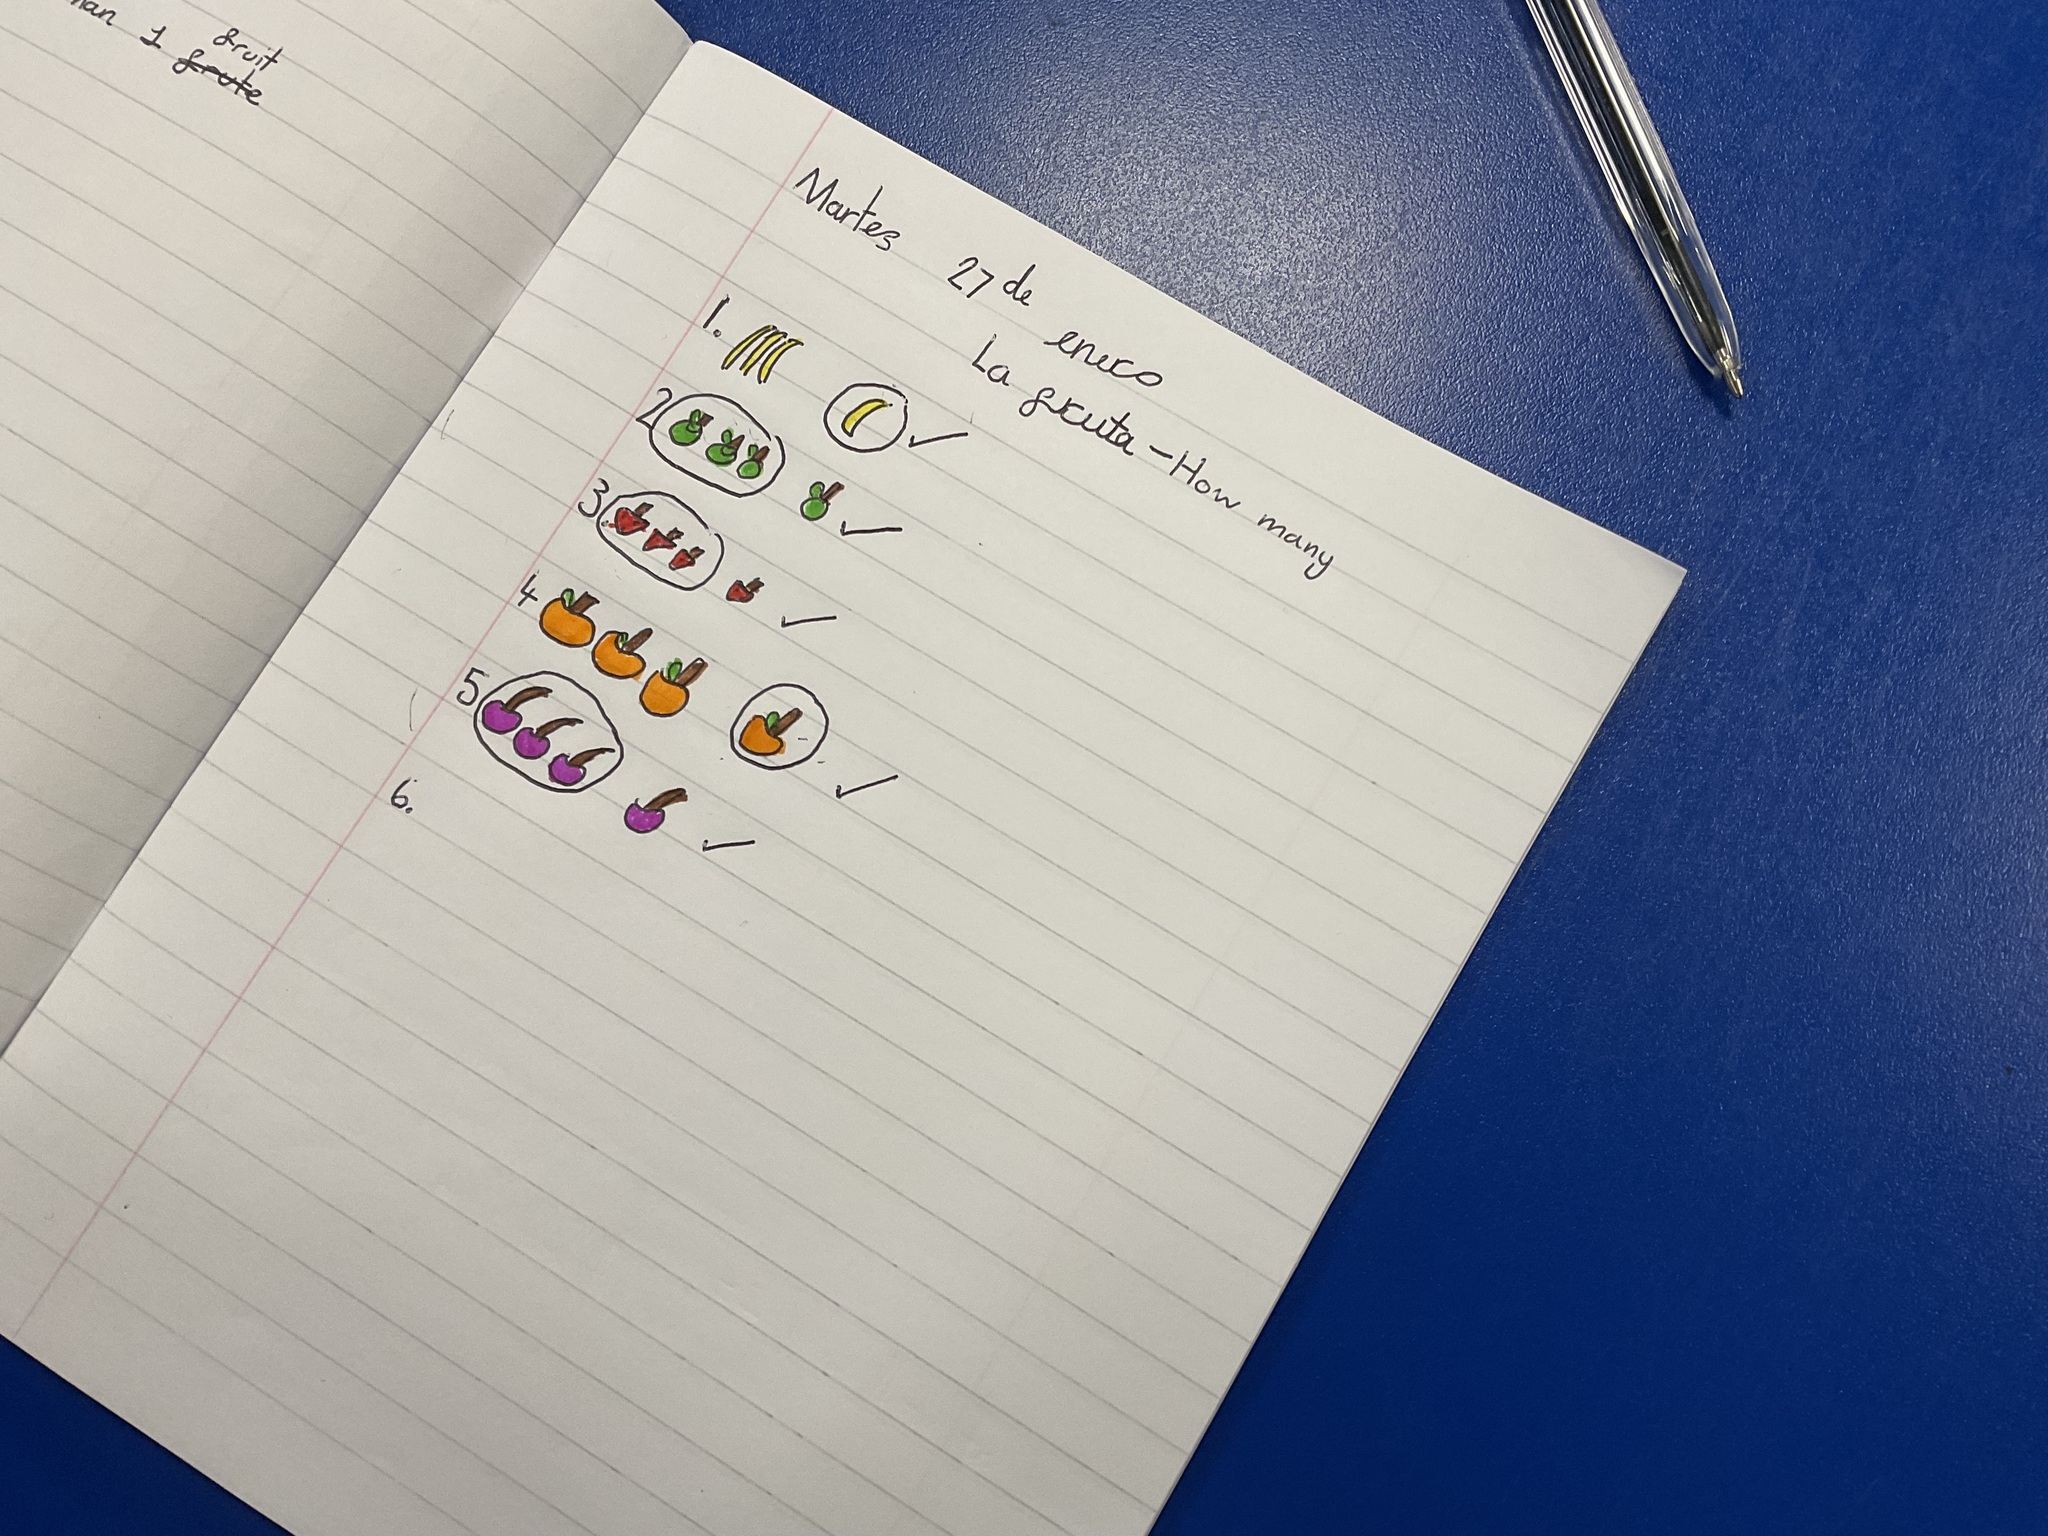 han 1 fruit
frute
Martes 27 de enero
La fruta - How many
1.
2
3.
4
5
6.